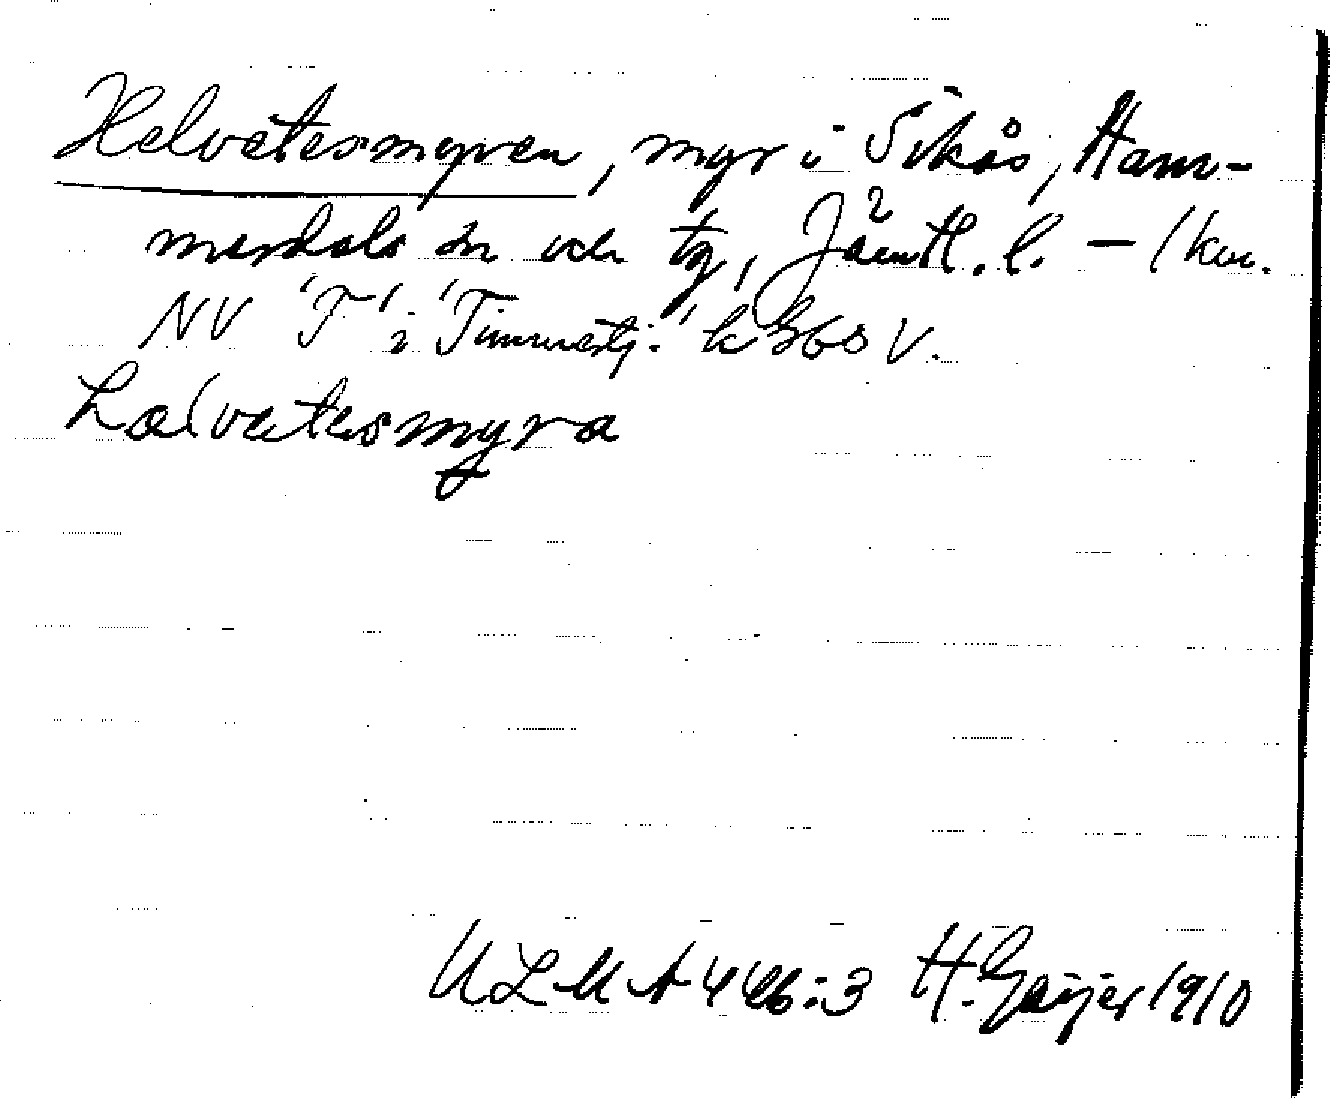 Helvetesmyren, myr i Sikås, Ham-
merdals sn och tg, Jämtl. l. — / kv.
NV 'T' i 'Timmertj.' k 360 V.
hælvetesmyra
ULMA 446:3 H. Geijer 1910